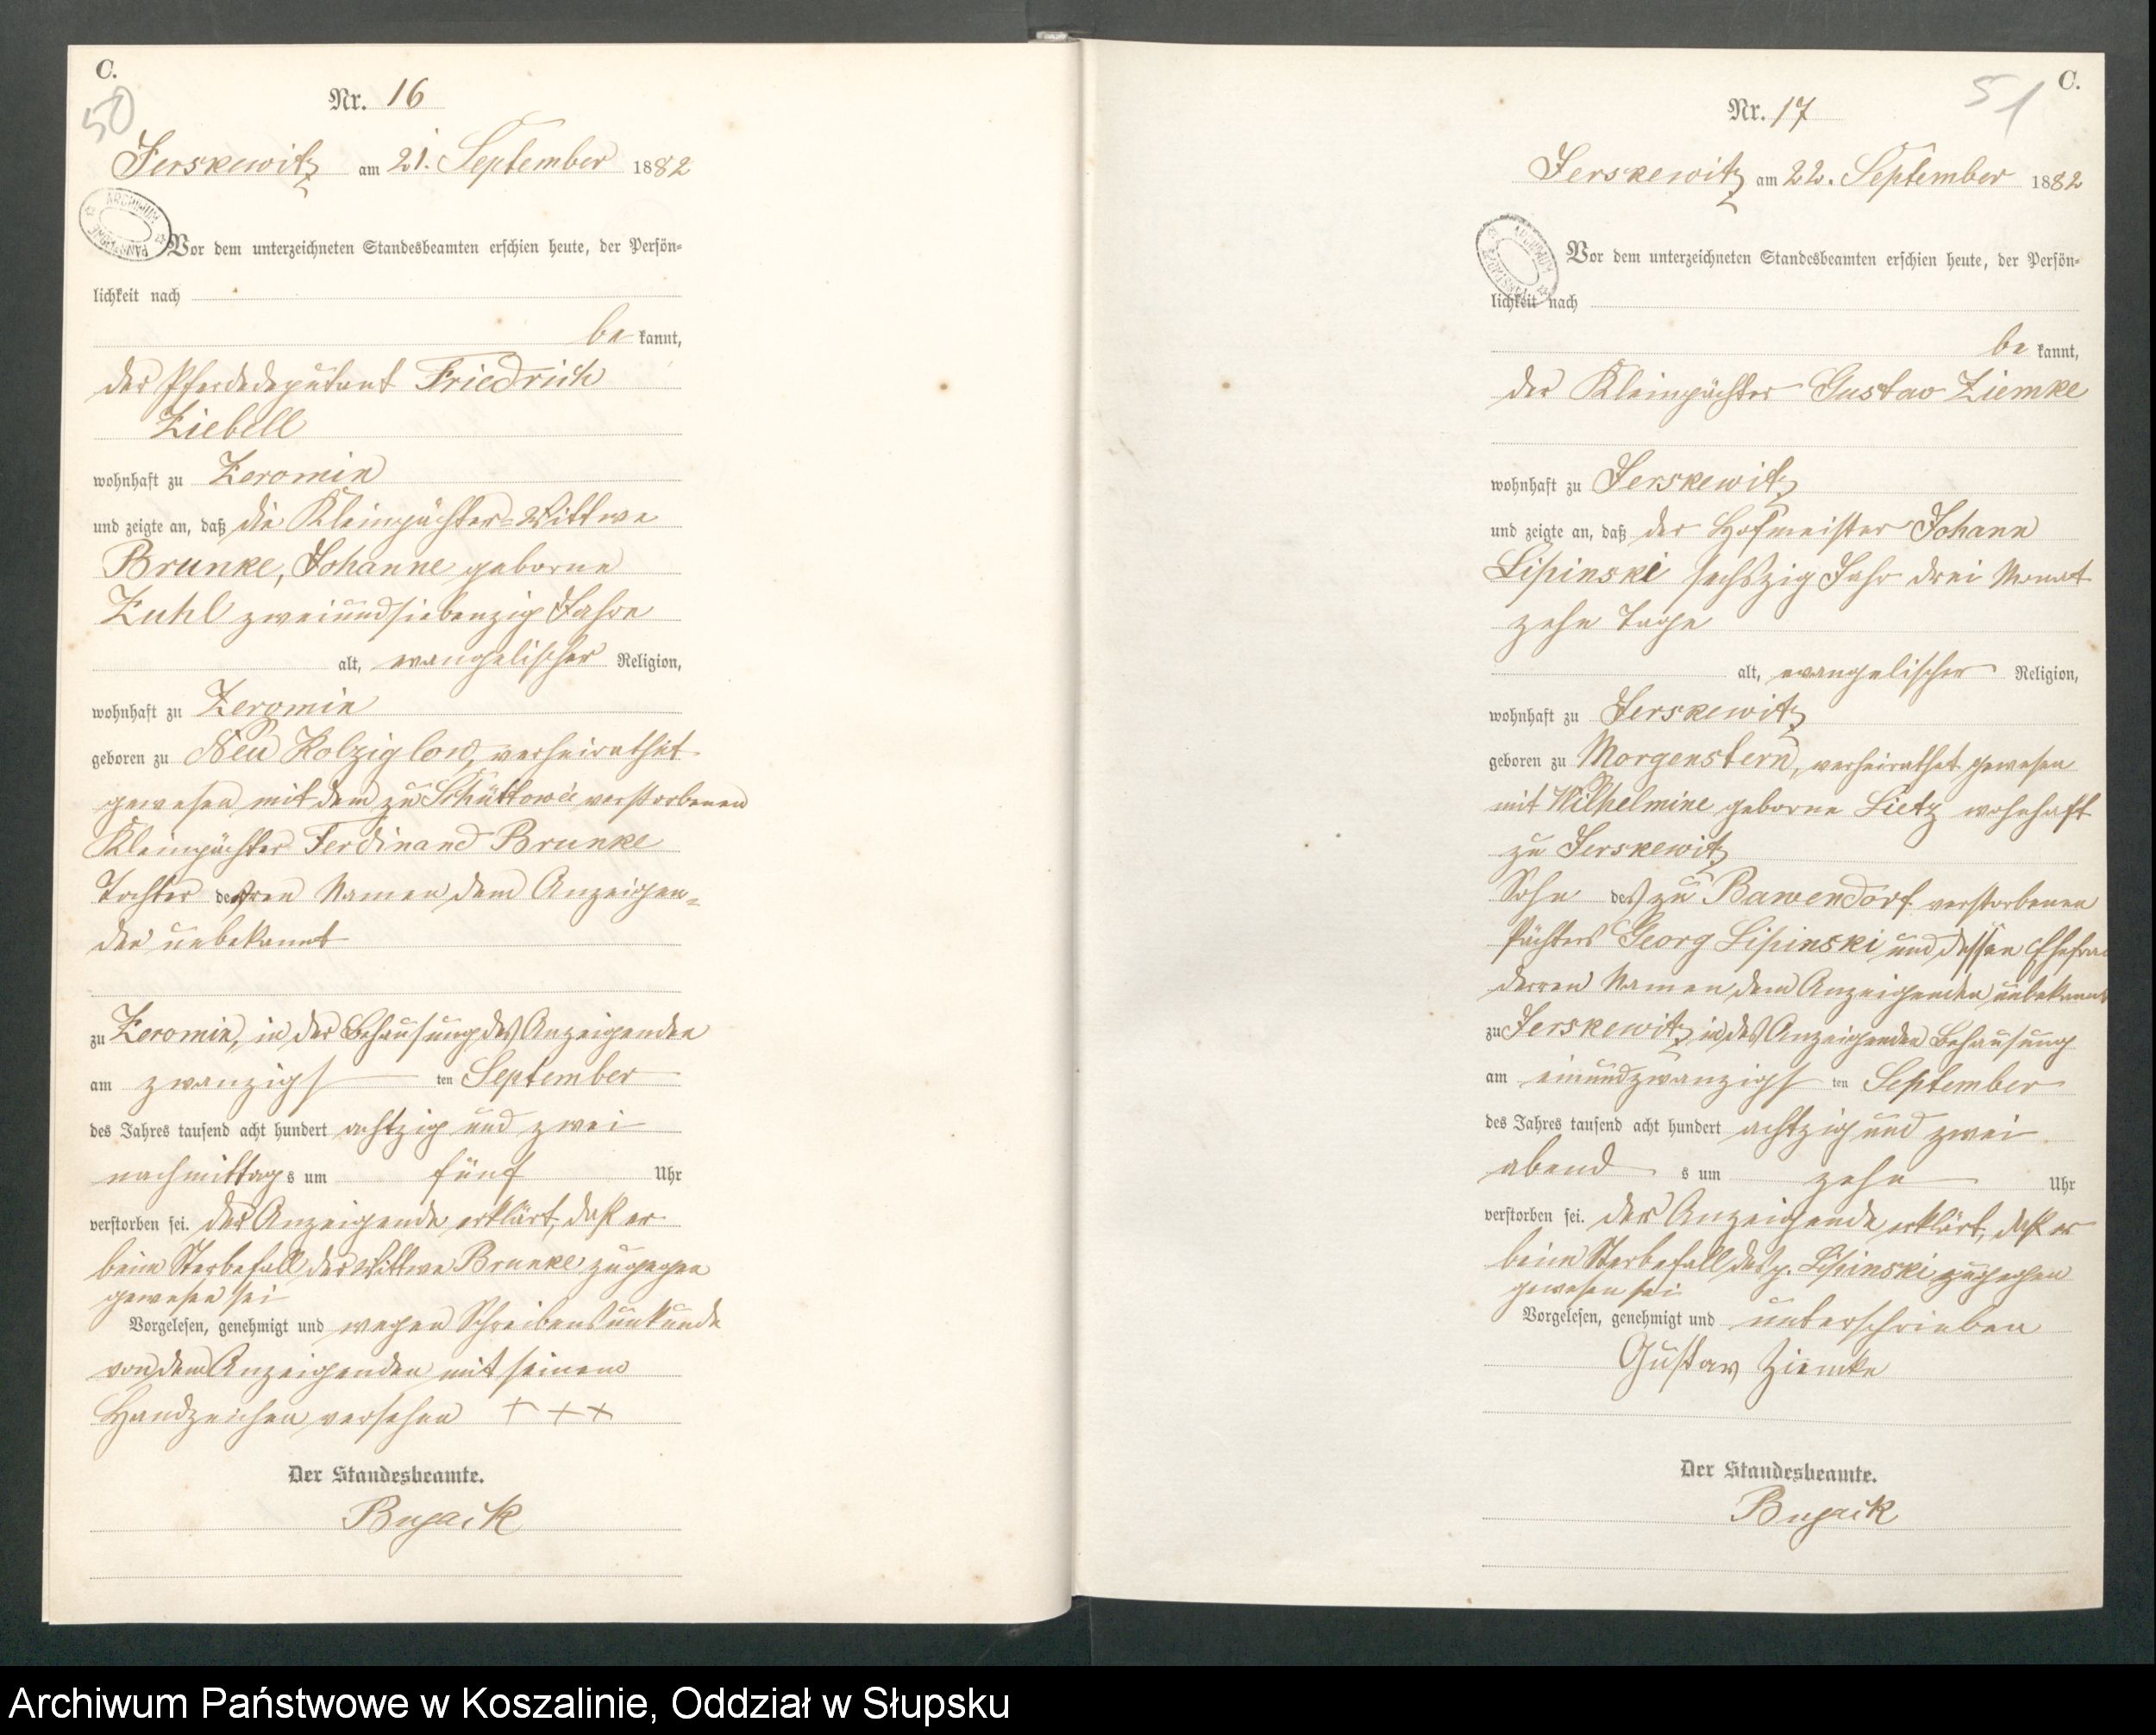 C.
50
Nr. 16
Jerskewitz am 21. September 1882
ARCHIWUM PAŃSTWOWE
Vor dem unterzeichneten Standesbeamten erschien heute, der Persön-
lichkeit nach
be kannt,
der Pferdedeputant Friedrich
Ziebell
wohnhaft zu Zeromin
und zeigte an, daß die Kleinpächter-Wittwe
Brunke, Johanne geborne
Zuhl zweiundsiebenzig Jahre
alt, evangelischer Religion,
wohnhaft zu Zeromin
geboren zu Neu Kolziglow, verheirathet
gewesen mit dem zu verstorbenen
Kleinpächter Ferdinand Brunke
Tochter deren Namen dem Anzeigen-
den unbekannt
zu Zeromin, in der Behausung des Anzeigenden
am zwanzigs ten September
des Jahres tausend acht hundert achtzig und zwei
nachmittag s um fünf Uhr
verstorben sei. Der Anzeigende erklärt, daß er
beim Sterbefall der Wittwe Brunke zugegen
gewesen sei
Vorgelesen, genehmigt und wegen Schreibensunkunde
von dem Anzeigenden mit seinem
Handzeichen versehen + + +
Der Standesbeamte.
Bugaik
C.
51
Nr. 17
Jerskewitz am 22. September 1882
ARCHIWUM PAŃSTWOWE
Vor dem unterzeichneten Standesbeamten erschien heute, der Persön-
lichkeit nach
be kannt,
der Kleinpächter Gustav Ziemke
wohnhaft zu Jerskewitz
und zeigte an, daß der Hofmeister Johann
Lipinski sechszig Jahr drei Monat
zehn Tage
alt, evangelischer Religion,
wohnhaft zu Jerskewitz
geboren zu Morgenstern, verheirathet gewesen
mit Wilhelmine geborne Lietz wohnhaft
zu Jerskewitz
Sohn des zu verstorbenen
Pächters Georg Lipinski und dessen Ehefrau
derren Namen dem Anzeigenden unbekannt
zu Jerskewitz in des Anzeigenden Behausung
am einundzwanzigs ten September
des Jahres tausend acht hundert achtzig und zwei
abend s um zehn Uhr
verstorben sei. Der Anzeigende erklärt, daß er
beim Sterbefall des p. Lipinski zugegen
gewesen sei
Vorgelesen, genehmigt und unterschrieben
Gustav Ziemke
Der Standesbeamte.
Bugaik
Archiwum Państwowe w Koszalinie, Oddział w Słupsku